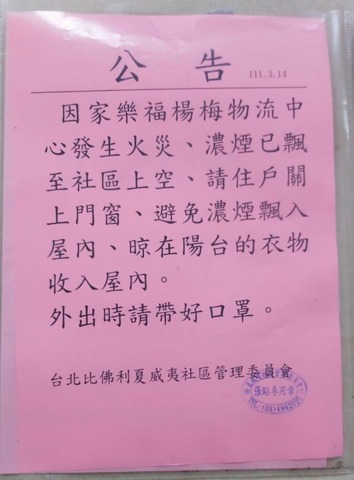 公告
111.3.14
因家樂福楊梅物流中
心發生火災、濃煙已飄
至社區上空、請住戶關
上門窗、避免濃煙飄入
屋內、晾在陽台的衣物
收入屋內。
外出時請帶好口罩。
台北比佛利夏威夷社區管理委員會
張貼專用章